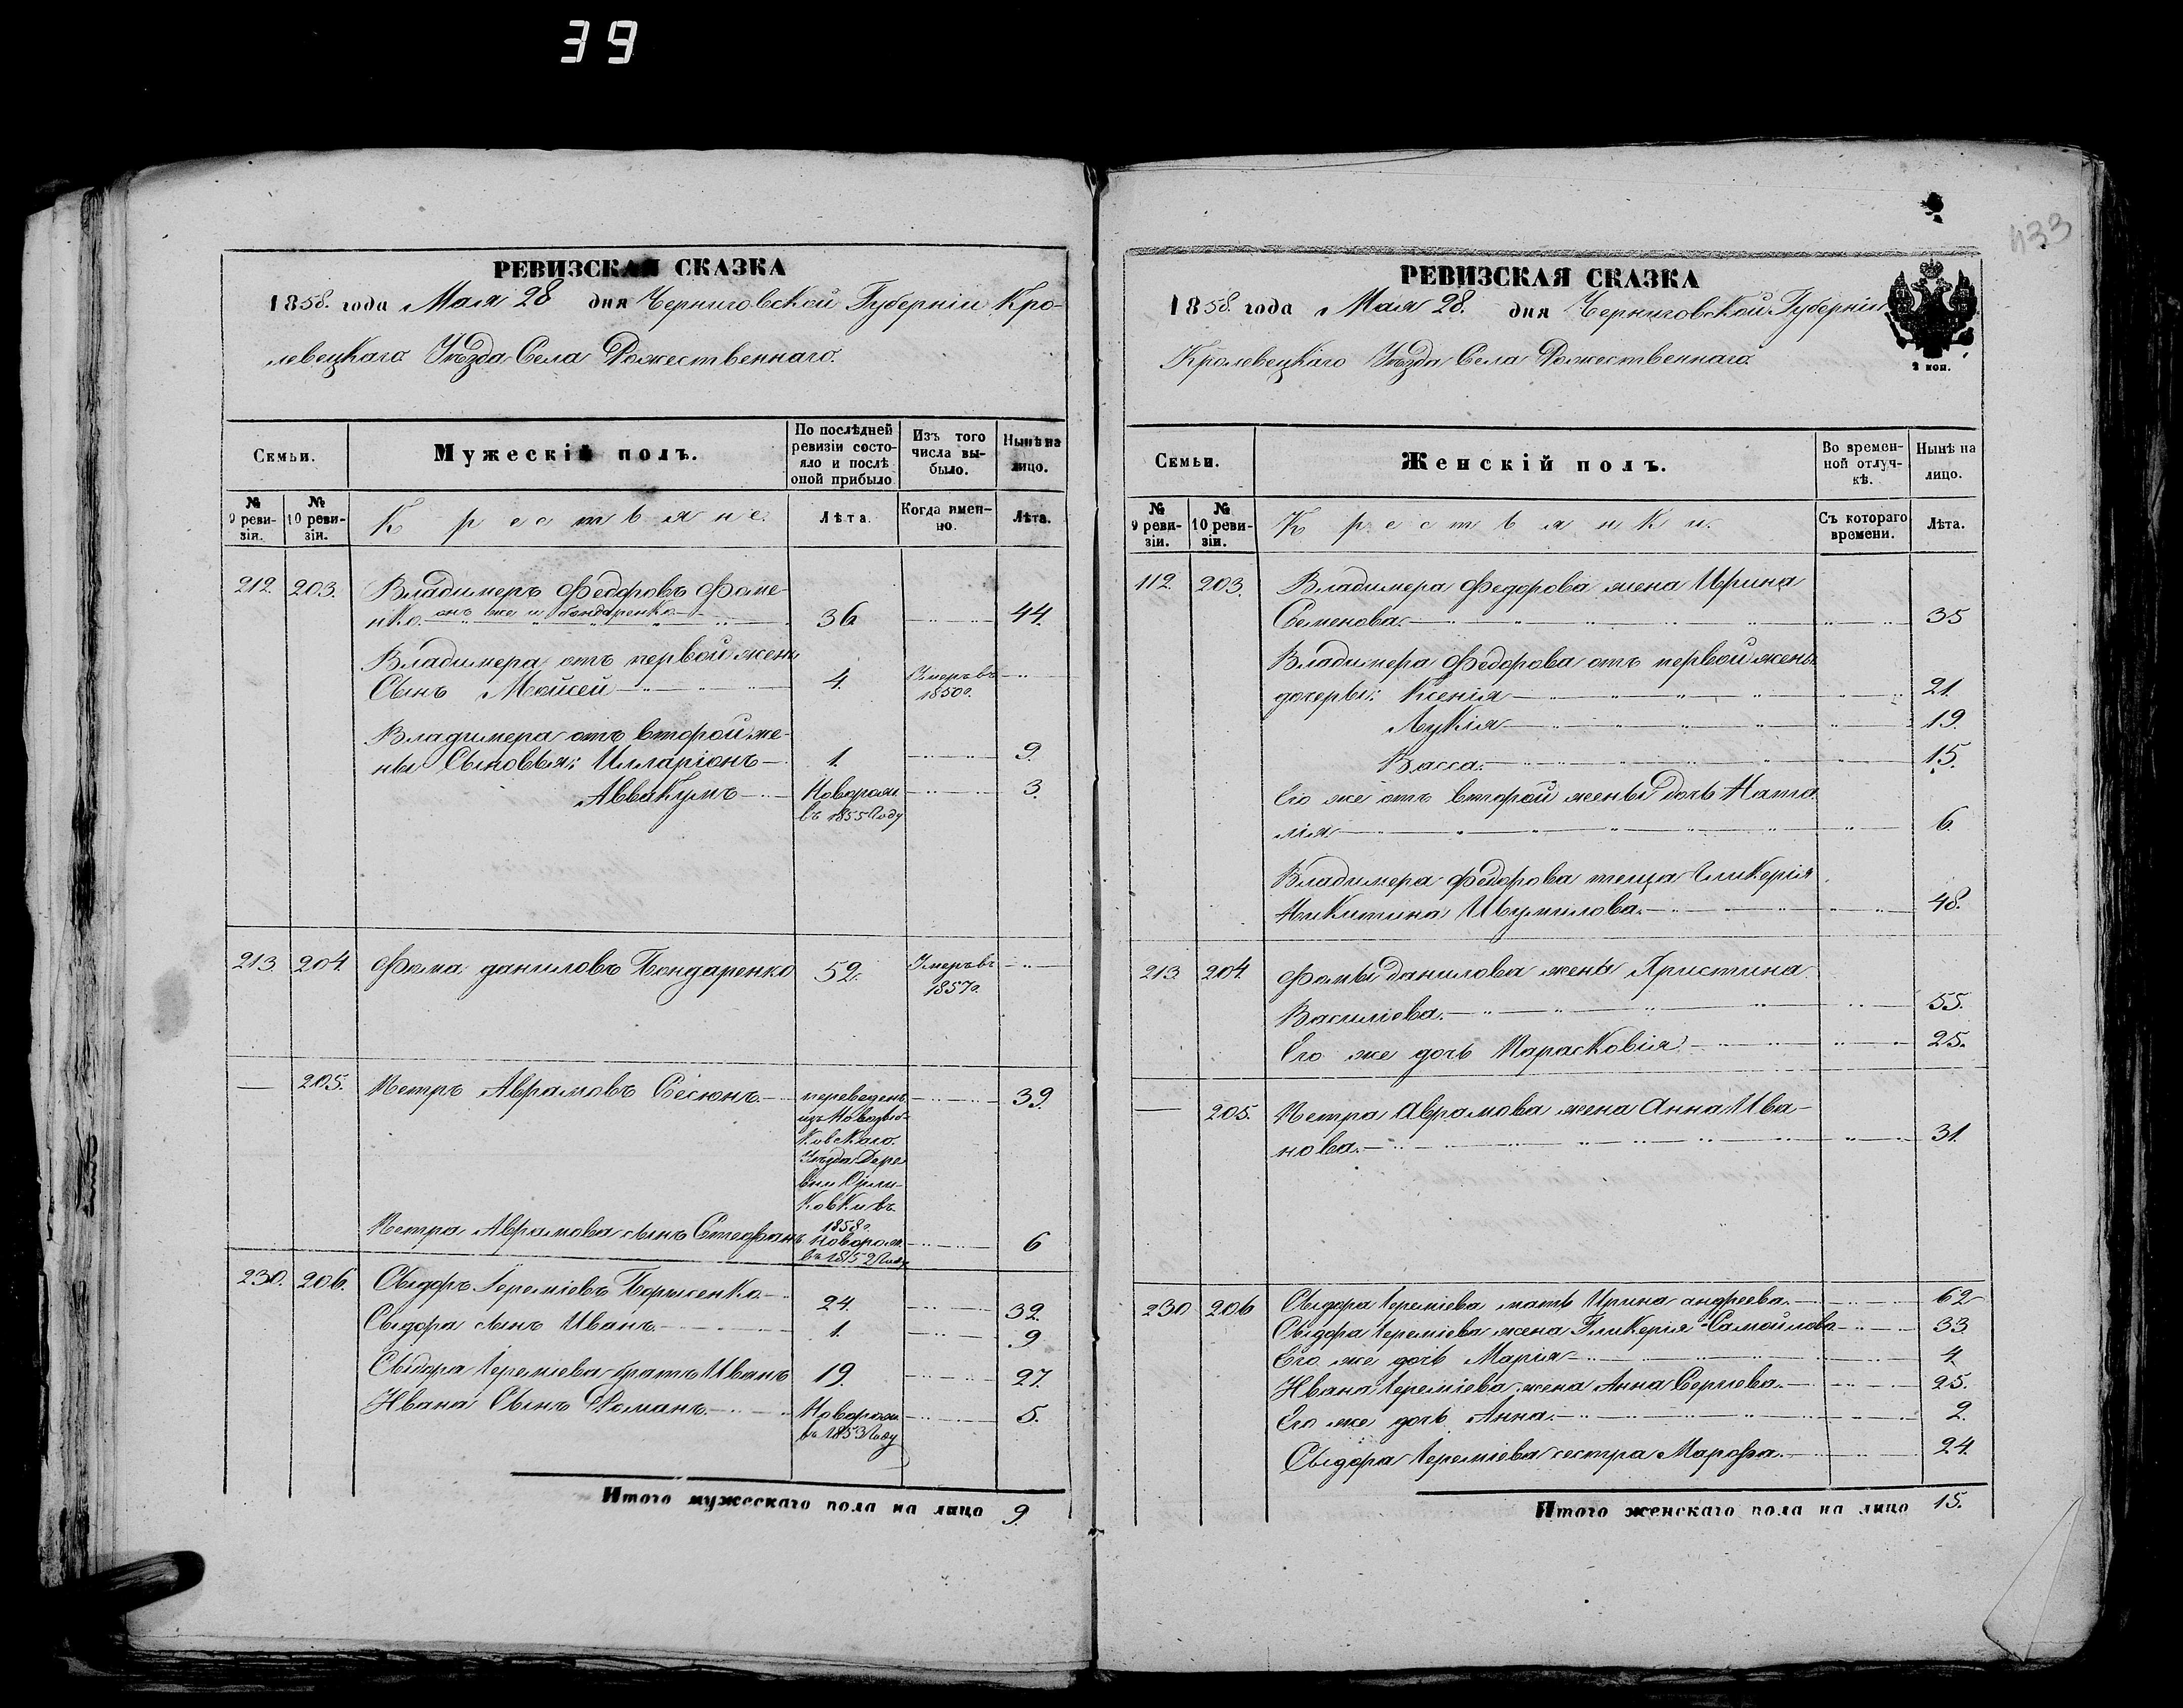 39
РЕВИЗСКАЯ СКАЗКА
1858. года Мая 28 дня Черниговской Губерніи Кро-
левецкаго Уѣзда Села Рожественнаго.
Семьи.
Мужескій полъ.
По послѣдней ревизіи состояло и послѣ оной прибыло
Изъ того числа выбыло.
Нынѣ на лицо.
№ 9 ревизіи.
№ 10 ревизіи.
Крестьяне.
Лѣта.
Когда именно.
Лѣта.
212. 203. Владимеръ Федоровъ Фоме-
нко. онъ же и бондаренко 36 44.
Владимера отъ первой жены
Сынъ Мойсей 4. Умеръ въ 1850 г.
Владимера отъ второй же-
ны Сыновья: Илларіонъ 1. 9.
Аввакумъ Новорож. въ 1855 Году 3.
213. 204. Фома даниловъ Бондаренко 52. Умеръ въ 1857 г.
— 205. Петръ Аврамовъ Сесюнъ. переведенъ 39.
изъ Новозыб-
ковскаго.
Уѣзда Дере
вни
ковки въ
1858 г.
Петра Аврамова сынъ Стефанъ Новорож. въ 1852 Году 6
230. 206. Сыдоръ Іереміевъ 24. 32.
Сыдора сынъ Иванъ. 1. 9
Сыдора Іереміева братъ Иванъ 19. 27.
Ивана Сынъ Романъ. Новорож. въ 1853 Году 5.
Итого мужескаго пола на лицо 9.
433
РЕВИЗСКАЯ СКАЗКА
1858. года Мая 28. дня Черниговской Губерніи
Кролевецкаго Уѣзда Села Рожественнаго.
2 коп.
Семьи.
Женскій полъ.
Во временной отлучкѣ.
Нынѣ на лицо.
№ 9 ревизіи.
№ 10 ревизіи.
Крестьянки.
Съ котораго времени.
Лѣта.
112. 203. Владимера Федорова жена Ирина
Семенова. 35
Владимера Федорова отъ первой жены
дочери: Ксенія 21.
Лукія 19.
Васса. 15.
Его же отъ второй жены дочь Ната
лія 6.
Владимера Федорова теща Гликерія
Никитина 48.
213 204. Фомы Данилова жена Христина
Василіева. 55.
Его же дочь Парасковія 25.
— 205. Петра Аврамова жена Анна Ива-
нова. 31.
230 206 Сыдора Іереміева мать Ирина андреева. 62
Сыдора Іереміева жена Гликерія Самойлова 33
Его же дочь Марія 4
Ивана Іереміева жена Анна Сергіева. 25.
Его же дочь Анна. 2.
Сыдора Іереміева сестра Марфа. 24.
Итого женскаго пола на лицо 15.